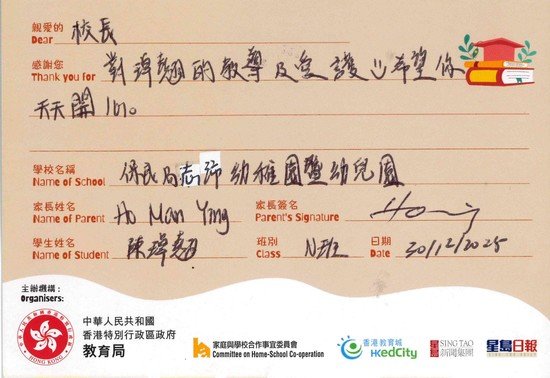 親愛的 校長
Dear
感謝您 對瑋翹的教導及愛護，希望你
Thank you for
天天開心。
學校名稱 保良局志沛幼稚園暨幼兒園
Name of School
家長姓名 Ho Man Ying 家長簽名
Name of Parent Parent's Signature
學生姓名 陳瑋翹 班別 N班 日期 30/12/2025
Name of Student Class Date
主辦機構：
Organisers:
中華人民共和國
香港特別行政區政府
教育局
HONG KONG
家庭與學校合作事宜委員會
Committee on Home-School Co-operation
香港教育城
HKedCity
星島 SING TAO
新聞集團
星島日報